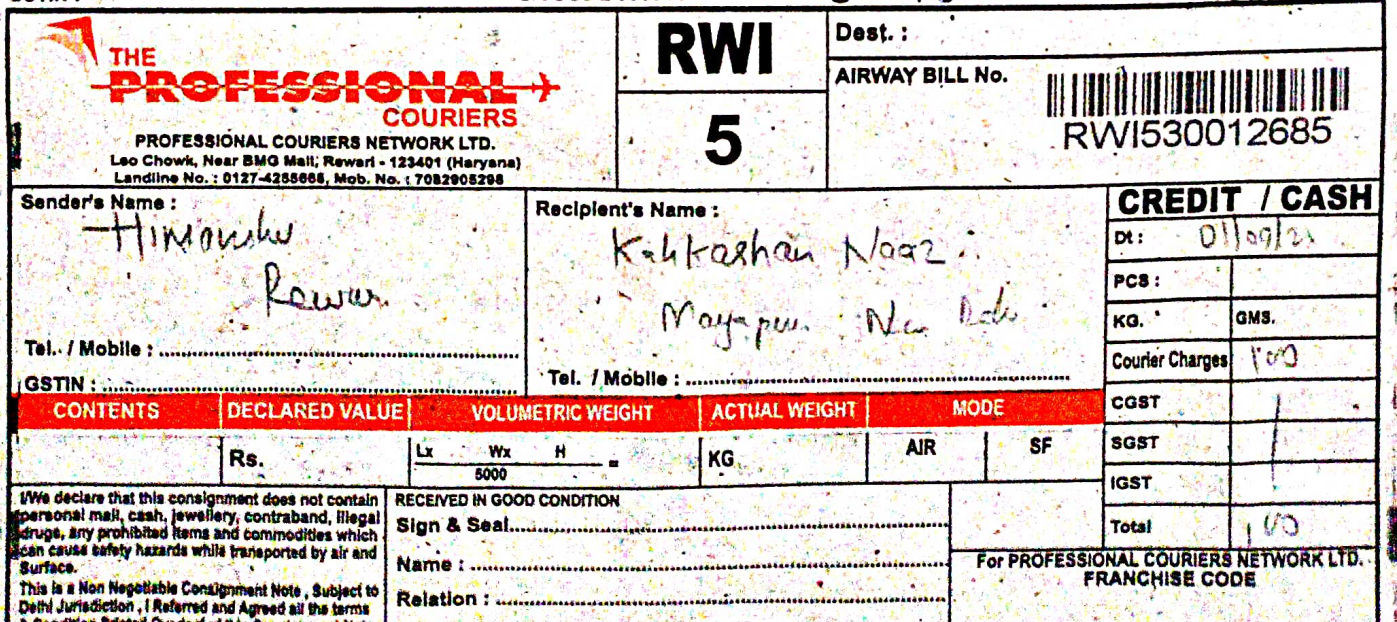 THE
PROFESSIONAL
COURIERS
PROFESSIONAL COURIERS NETWORK LTD.
Leo Chowk, Near BMG Mall, Rewari - 123401 (Haryana)
Landline No. : 0127-4255668, Mob. No. : 7082905298
RWI
5
Dest. :
AIRWAY BILL No.
RWI530012685
Sender's Name :
Himanshu
Tel. / Mobile :
GSTIN :
Recipient's Name :
Kahkashan Naaz
Mayapuri New
Tel. / Mobile :
CREDIT / CASH
Dt : 01/09/
PCS :
KG. GMS.
Courier Charges 100
CGST
SGST
IGST
Total 100
CONTENTS DECLARED VALUE VOLUMETRIC WEIGHT ACTUAL WEIGHT MODE
Rs. Lx Wx H = KG AIR SF
5000
I/We declare that this consignment does not contain
personal mail, cash, jewellery, contraband, illegal
drugs, any prohibited items and commodities which
can cause safety hazards while transported by air and
Surface.
This is a Non Negotiable Consignment Note , Subject to
Delhi Jurisdiction , I Referred and Agreed all the terms
RECEIVED IN GOOD CONDITION
Sign & Seal
Name :
Relation :
For PROFESSIONAL COURIERS NETWORK LTD.
FRANCHISE CODE